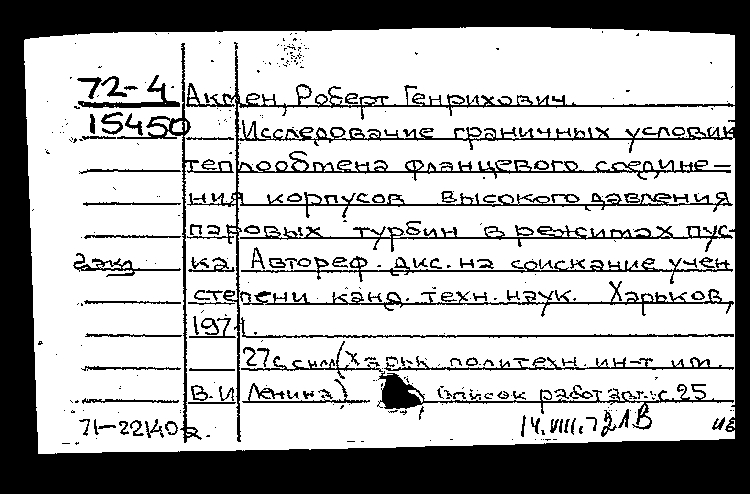 72-4 Акмен, Роберт Генрихович.
15450 Исследование граничных условий
теплообмена фланцевого соедине-
ния корпусов высокого давления
паровых турбин в режимах пус-
ка. Автореф. дис. на соискание учен
степени канд. техн. наук. Харьков,
1971.
27 с. (Харьк политехн. ин-т им.
В. И Ленина) Список работ с. 25
71-22140
14.VIII.72